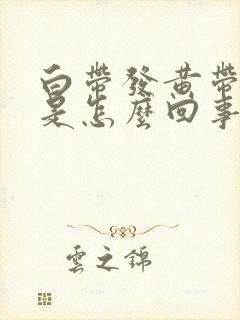 白帶發黄帶
是怎麼回事
雲之錦